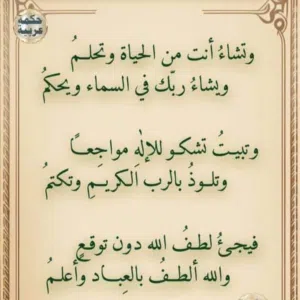 حكمة
عربية
وتشاءُ أنت من الحياة وتحلمُ
ويشاءُ ربّك في السماء ويحكمُ
وتبيتُ تشكو للإلٰهِ مواجعاً
وتلوذُ بالرب الكريمِ وتكتمُ
فيجئُ لطفُ الله دون توقعٍ
والله ألطفُ بالعِبادِ وأعلمُ